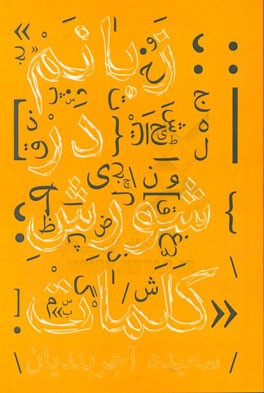 زبانم
در
شورش
کلمات
سعیده آجربندیان